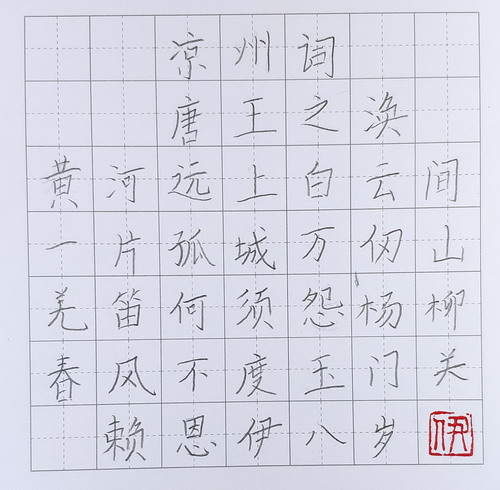 凉州词
唐王之涣
黄河远上白云间
一片孤城万仞山
羌笛何须怨杨柳
春风不度玉门关
赖恩伊八岁
伊